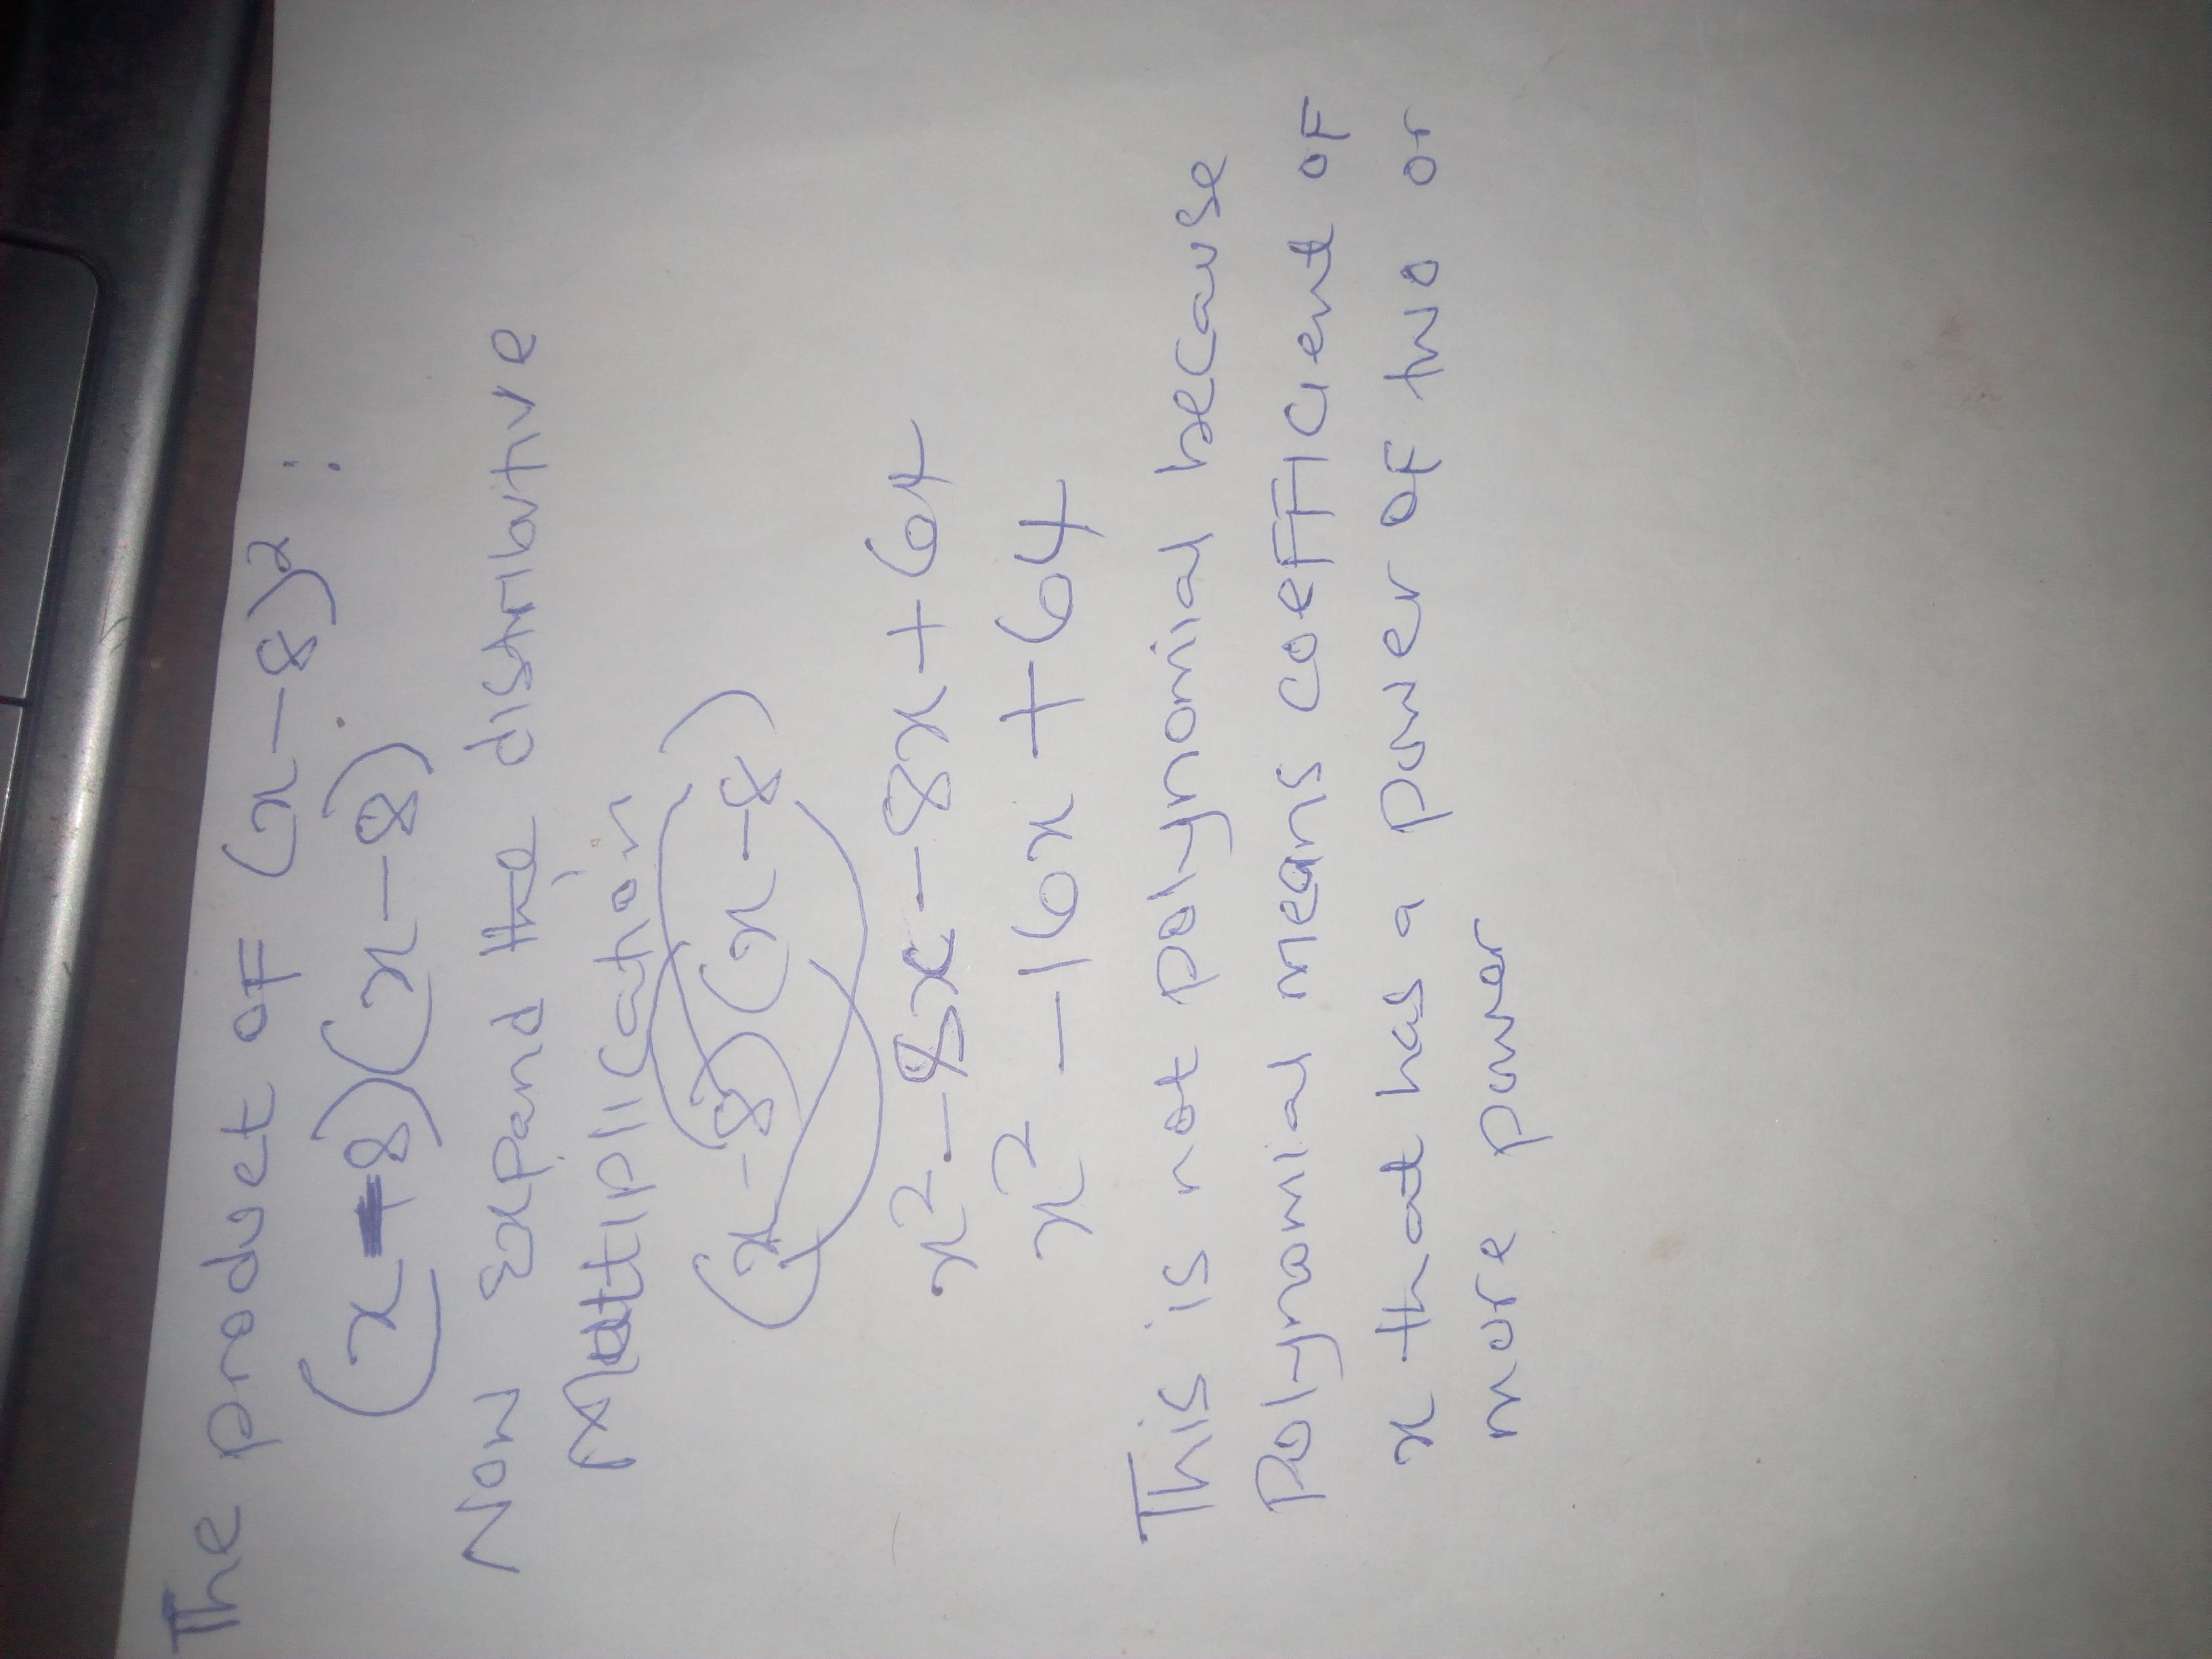 The product of (x-8)²:
(x-8)(x-8)
Now Expand the distributive
Multiplication
(x-8)(x-8)
x²-8x-8x+64
x²-16x+64
This is not polynomial because
Polynomial means coefficient of
x that has a power of two or
more power